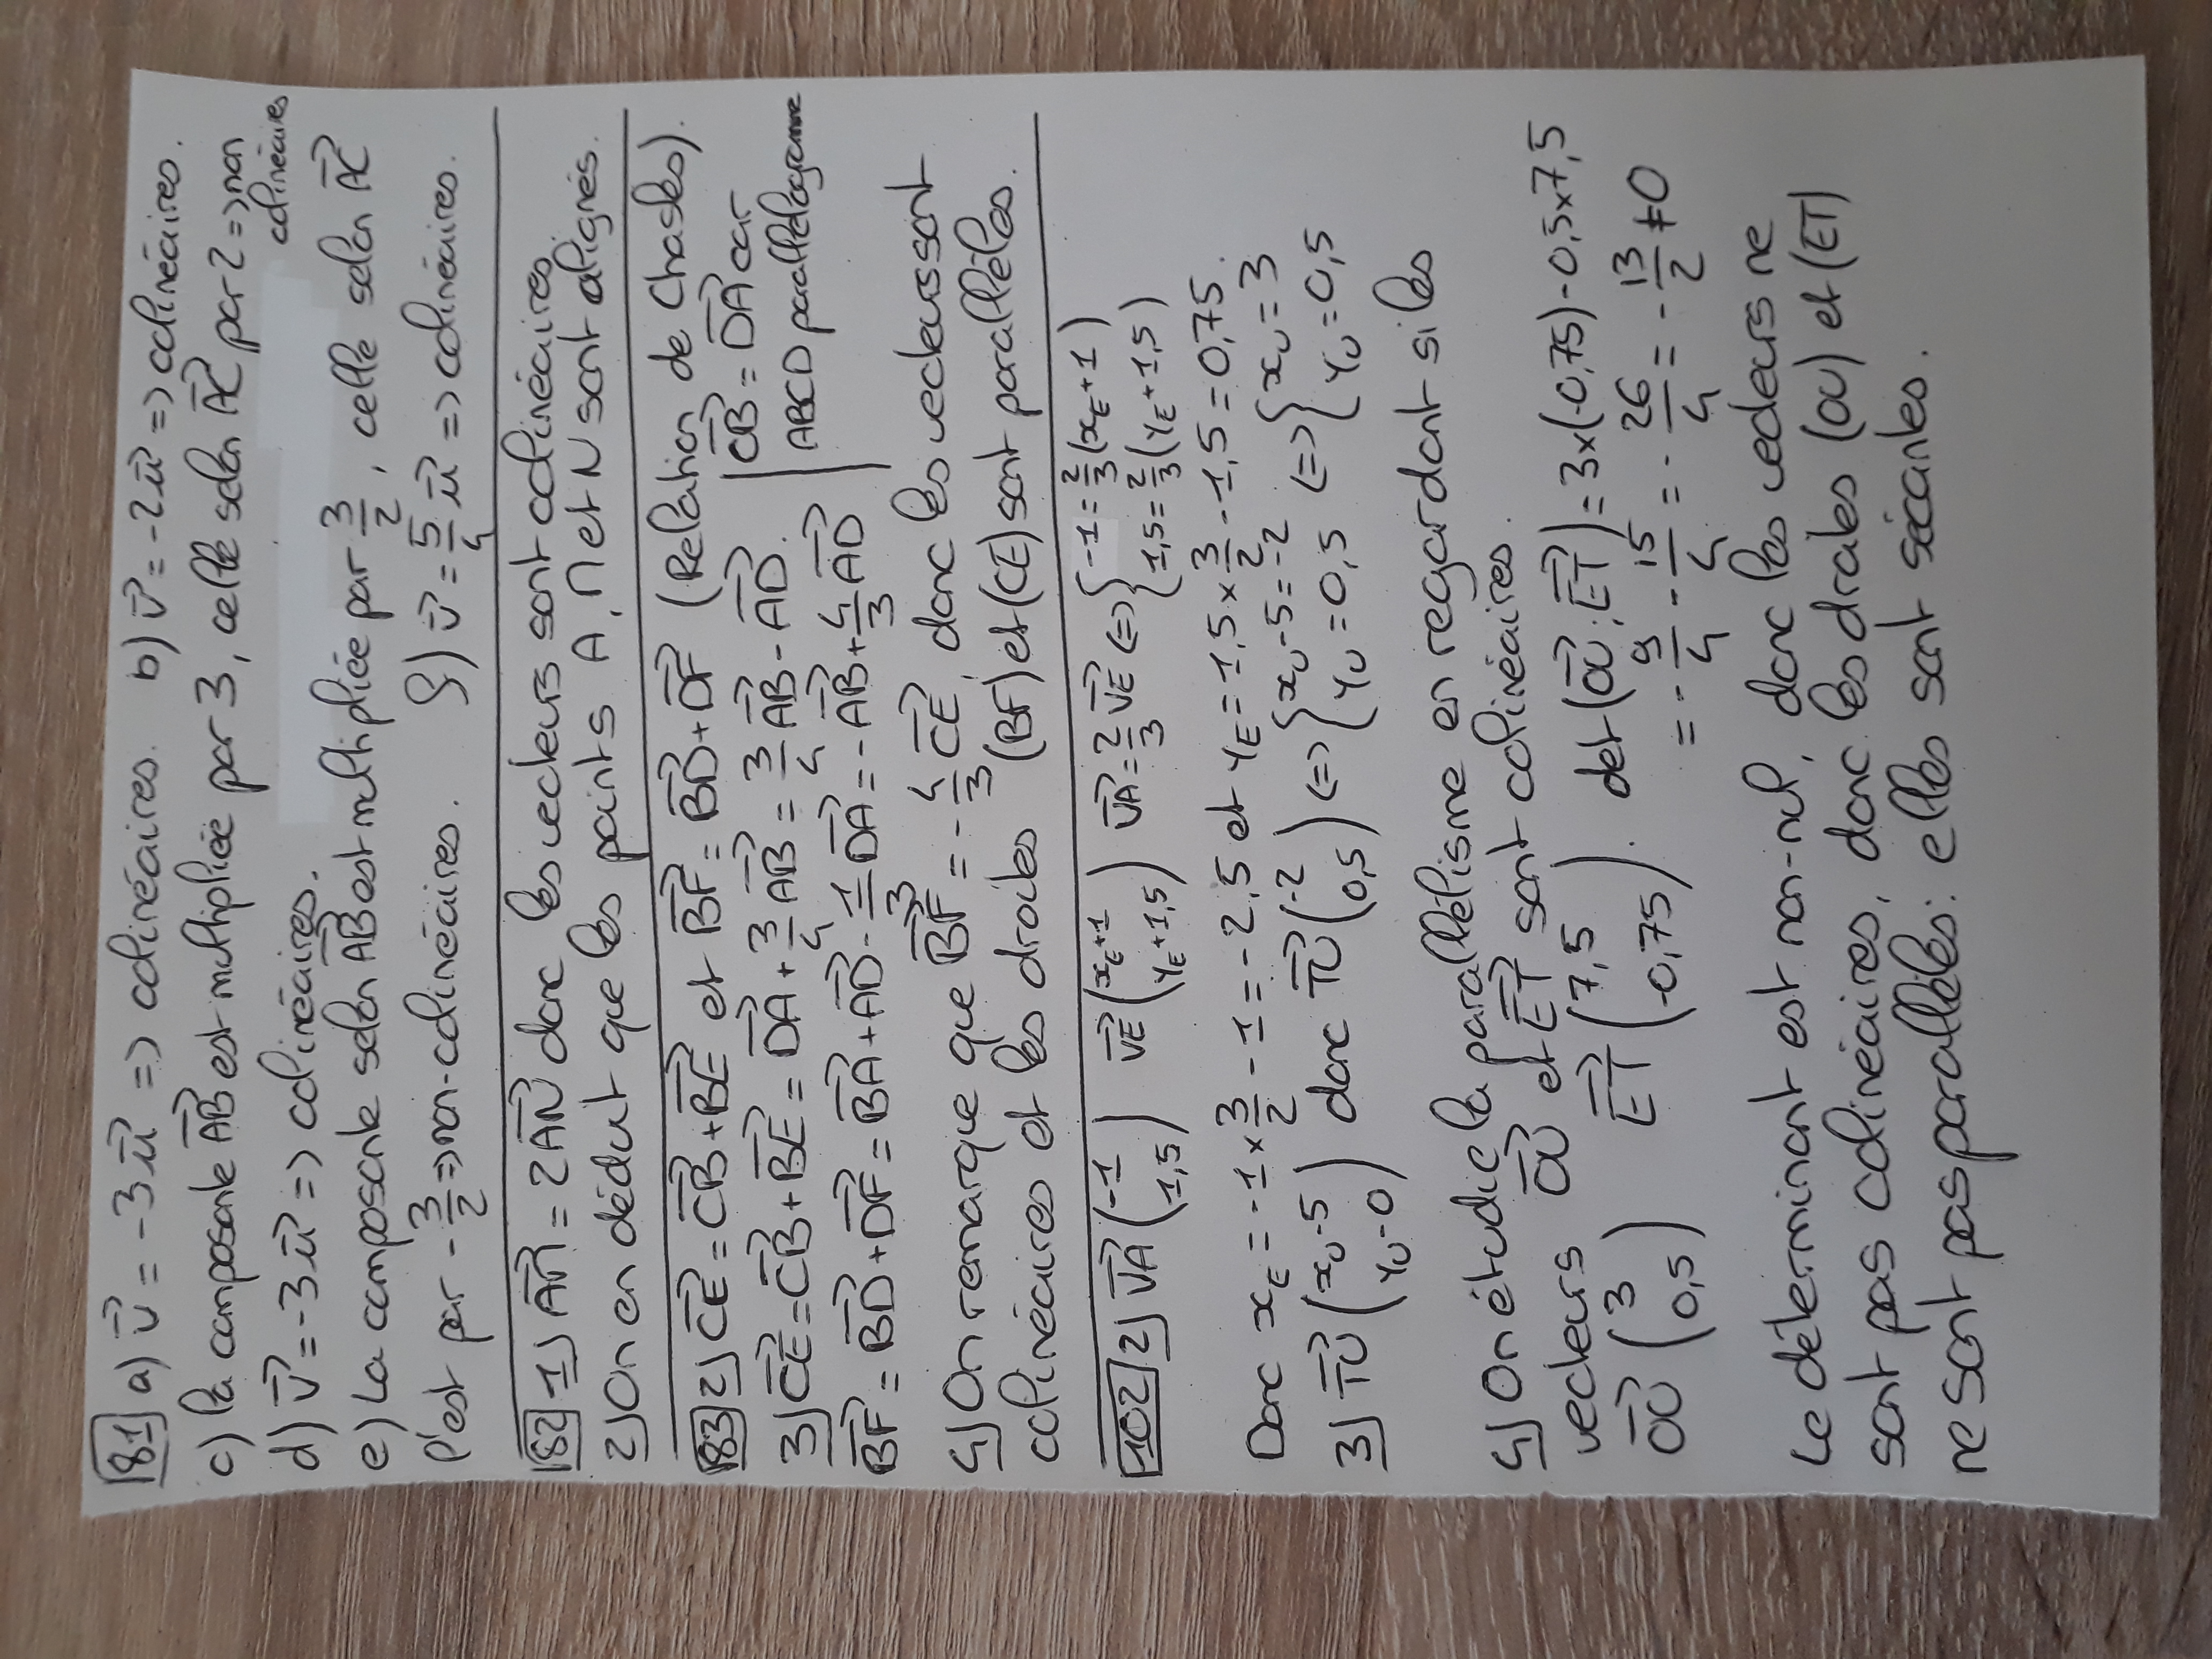 81 a) v⃗ = -3u⃗ => colinéaires. b) v⃗ = -2u⃗ => colinéaires.
c) la composante AB⃗ est multipliée par 3, celle selon AC⃗ par 2 => non
colinéaires
d) v⃗ = -3u⃗ => colinéaires.
e) La composante selon AB⃗ est multipliée par 3/2, celle selon AC⃗
l'est par -3/2 => non-colinéaires. f) v⃗ = 5/4 u⃗ => colinéaires.
82 1) AM⃗ = 2AN⃗ donc les vecteurs sont colinéaires.
2) On en déduit que les points A, M et N sont alignés.
83 2) CE⃗ = CB⃗ + BE⃗ et BF⃗ = BD⃗ + DF⃗ (Relation de Chasles).
3) CE⃗ = CB⃗ + BE⃗ = DA⃗ + 3/4 AB⃗ = 3/4 AB⃗ - AD⃗. | CB⃗ = DA⃗ car
ABCD parallélogramme
BF⃗ = BD⃗ + DF⃗ = BA⃗ + AD⃗ - 1/3 DA⃗ = -AB⃗ + 4/3 AD⃗
4) On remarque que BF⃗ = -4/3 CE⃗, donc les vecteurs sont
colinéaires et les droites (BF) et (CE) sont parallèles.
102 2) VA⃗ (-1 ; 1,5) VE⃗ (x_E+1 ; y_E+1,5) VA⃗ = 2/3 VE⃗ <=> { -1 = 2/3 (x_E+1) ; 1,5 = 2/3 (y_E+1,5)
Donc x_E = -1 × 3/2 - 1 = -2,5 et y_E = 1,5 × 3/2 - 1,5 = 0,75.
3) TU⃗ (x_U-5 ; y_U-0) donc TU⃗ (-2 ; 0,5) <=> { x_U-5 = -2 ; y_U = 0,5 <=> { x_U = 3 ; y_U = 0,5
4) On étudie la parallélisme en regardant si les
vecteurs OU⃗ et ET⃗ sont colinéaires.
OU⃗ (3 ; 0,5) ET⃗ (7,5 ; -0,75). det(OU⃗ ; ET⃗) = 3×(-0,75) - 0,5×7,5
= -9/4 - 15/4 = -26/4 = -13/2 ≠ 0
Le déterminant est non-nul, donc les vecteurs ne
sont pas colinéaires, donc les droites (OU) et (ET)
ne sont pas parallèles: elles sont sécantes.